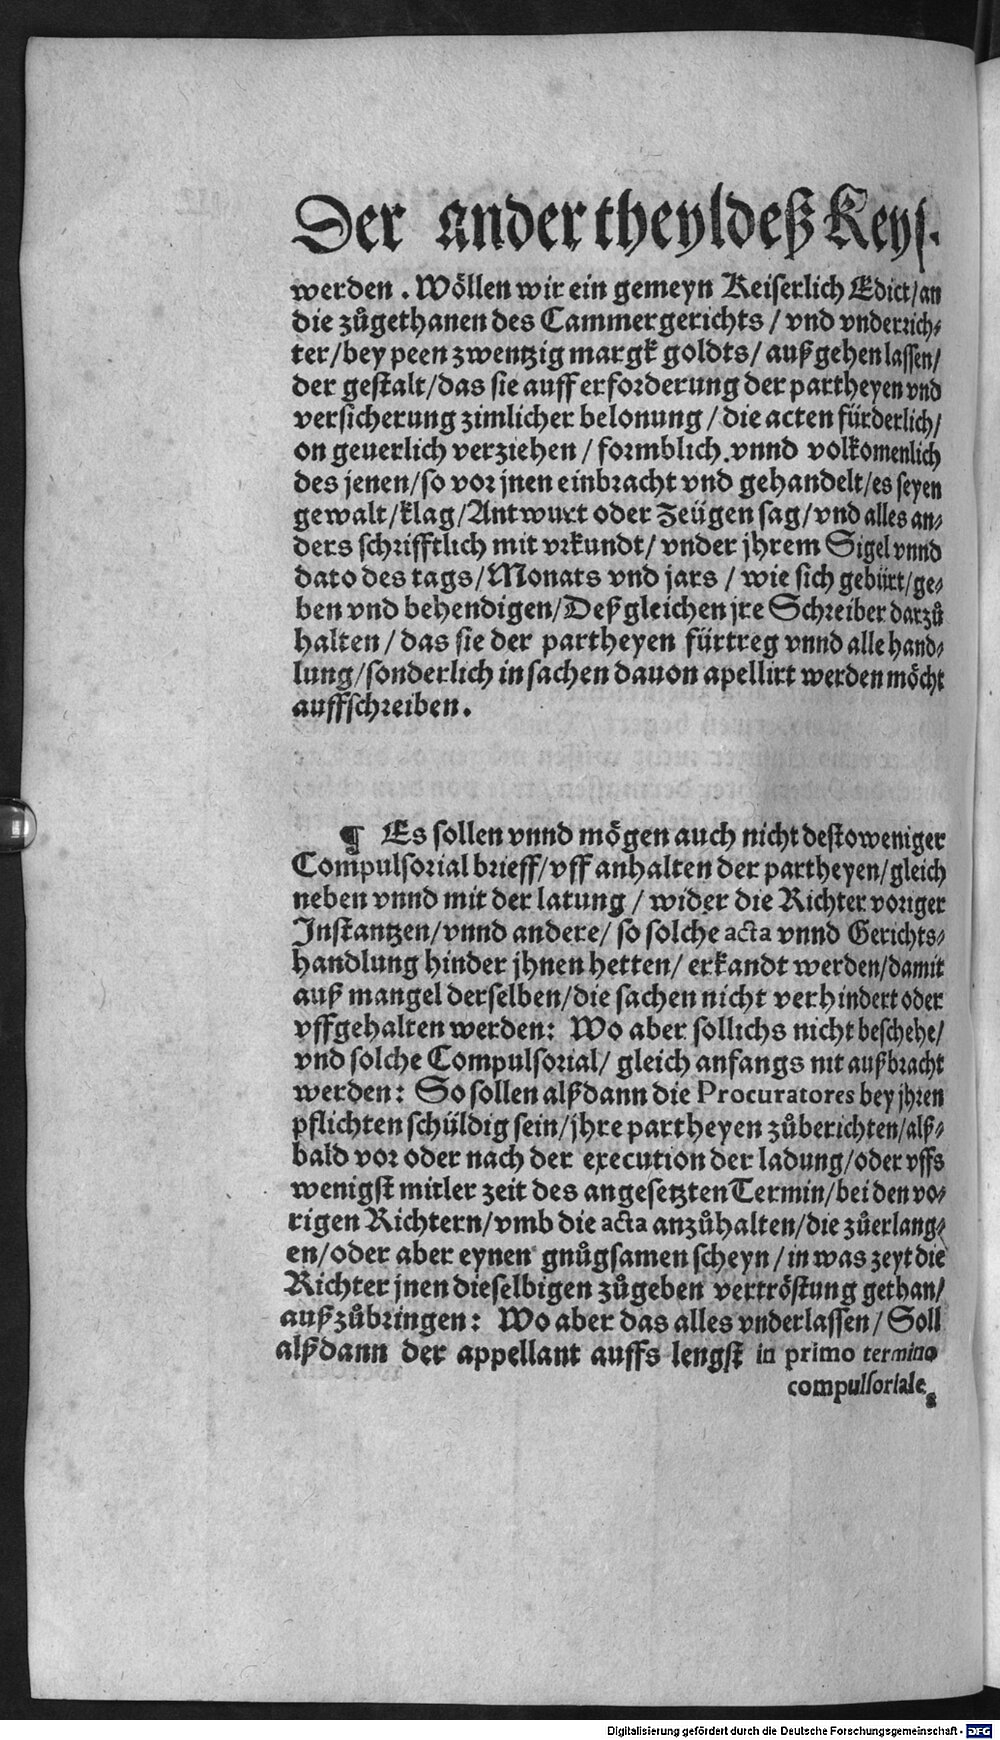 Der ander theyl deß Keys.
werden. Wöllen wir ein gemeyn Keiserlich Edict/an
die zůgethanen des Cammergerichts/vnd vnderrich⸗
ter/bey peen zwentzig margk goldts/außgehen lassen/
der gestalt/das sie auff erforderung der partheyen vnd
versicherung zimlicher belonung/die acten fürderlich/
on geuerlich verziehen/formblich vnnd volkomenlich
des jenen/so vor jnen einbracht vnd gehandelt/es seyen
gewalt/klag/Antwurt oder Zeügen sag/vnd alles an⸗
ders schrifftlich mit vrkundt/vnder jhrem Sigel vnnd
dato des tags/Monats vnd jars/wie sich gebürt/ge⸗
ben vnd behendigen/Deßgleichen jre Schreiber darzů
halten/das sie der partheyen fürtreg vnnd alle hand⸗
lung/sonderlich in sachen dauon apellirt werden möcht
auffschreiben.
¶ Es sollen vnnd mögen auch nicht destoweniger
Compulsorial brieff/vff anhalten der partheyen/gleich
neben vnnd mit der latung/wider die Richter voriger
Instantzen/vnnd andere/so solche acta vnnd Gerichts⸗
handlung hinder jhnen hetten/erkandt werden/damit
auß mangel derselben/die sachen nicht verhindert oder
vffgehalten werden: Wo aber sollichs nicht beschehe/
vnd solche Compulsorial/gleich anfangs nit außbracht
werden: So sollen alßdann die Procuratores bey jhren
pflichten schüldig sein/jhre partheyen zůberichten/alß⸗
bald vor oder nach der execution der ladung/oder vffs
wenigst mitler zeit des angesetzten Termin/bei den vo⸗
rigen Richtern/vmb die acta anzůhalten/die zůerlang⸗
en/oder aber eynen gnůgsamen scheyn/in was zeyt die
Richter jnen dieselbigen zůgeben vertröstung gethan/
außzůbringen: Wo aber das alles vnderlassen/Soll
alßdann der appellant auffs lengst in primo termino
compulsoriale⸗
Digitalisierung gefördert durch die Deutsche Forschungsgemeinschaft - DFG